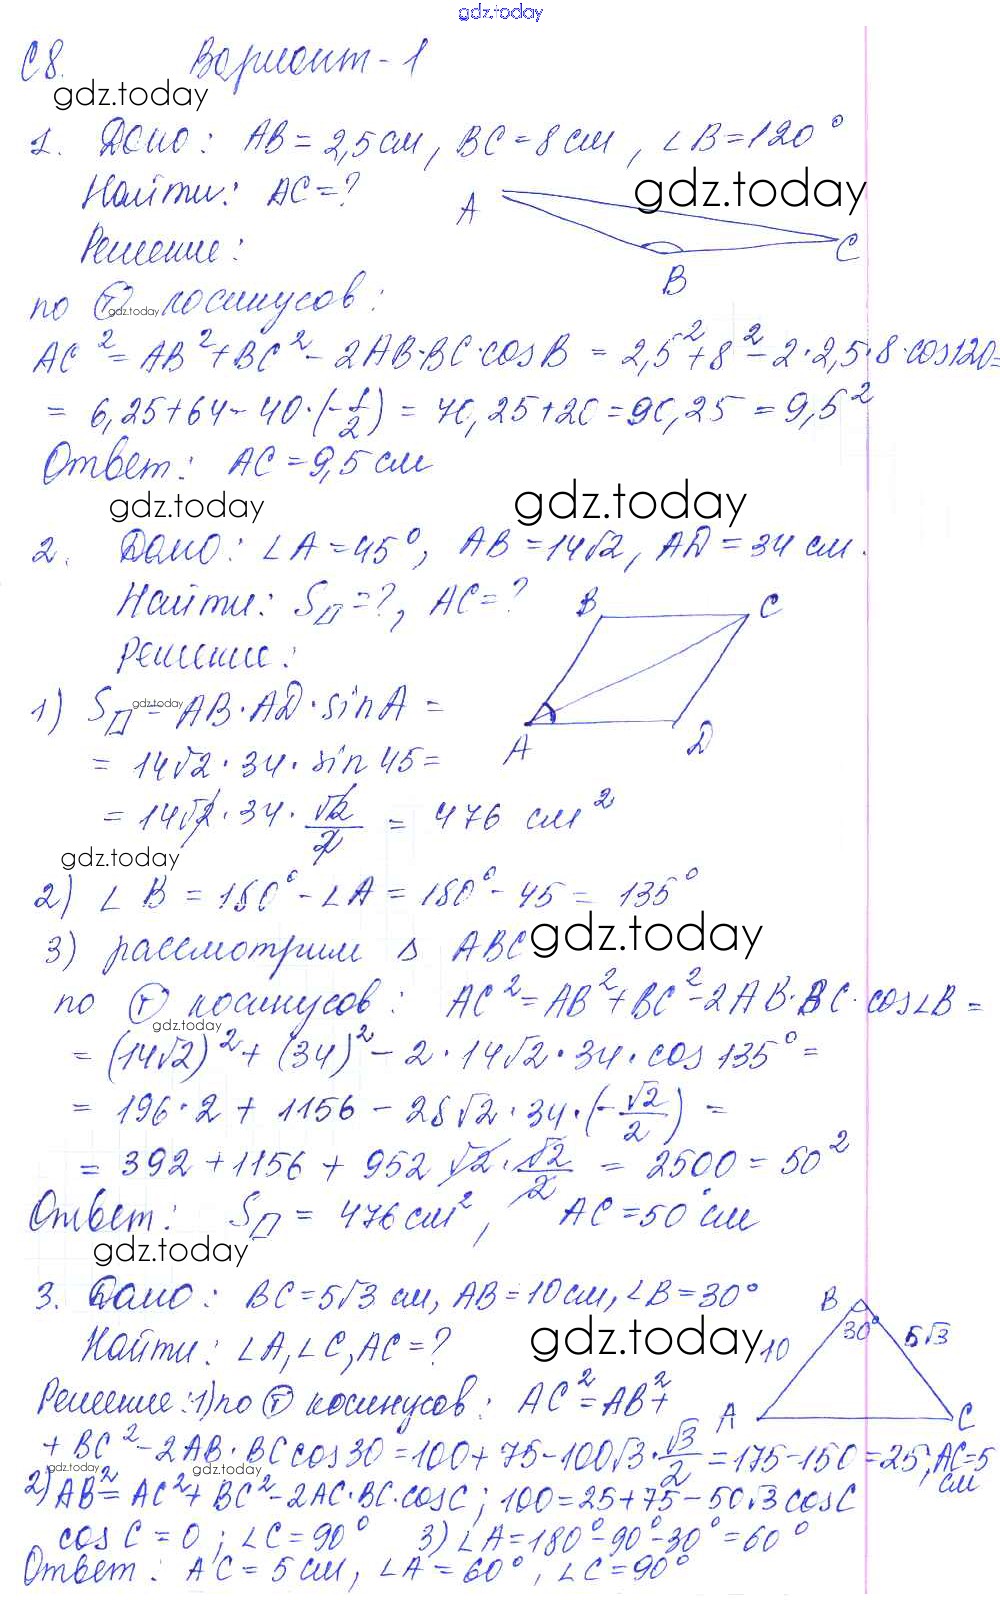 gdz.today
С8. Вариант-1
gdz.today
1. Дано: AB = 2,5 см, BC = 8 см, ∠B = 120°
Найти: AC = ?
gdz.today
A
C
B
Решение:
по Ⓣ косинусов:
gdz.today
AC² = AB² + BC² - 2AB·BC·cos B = 2,5² + 8² - 2·2,5·8·cos120=
= 6,25+64-40·(-1/2) = 70,25+20 = 90,25 = 9,5²
Ответ: AC = 9,5 см
gdz.today gdz.today
2. Дано: ∠A = 45°, AB = 14√2, AD = 34 см.
Найти: S▱ = ?, AC = ?
B C
A D
Решение:
1) S▱ = AB·AD·sin A =
gdz.today
= 14√2·34·sin 45 =
= 14√2·34·√2/2 = 476 см²
gdz.today
2) ∠B = 180° - ∠A = 180° - 45 = 135°
3) рассмотрим △ ABC
gdz.today
по Ⓣ косинусов: AC² = AB² + BC² - 2AB·BC·cos∠B =
gdz.today
= (14√2)² + (34)² - 2·14√2·34·cos 135° =
= 196·2 + 1156 - 28√2·34·(-√2/2) =
= 392 + 1156 + 952√2·√2/2 = 2500 = 50²
Ответ: S▱ = 476 см², AC = 50 см
gdz.today
3. Дано: BC = 5√3 см, AB = 10 см, ∠B = 30°
Найти: ∠A, ∠C, AC = ?
gdz.today
B
30°
10
5√3
A
C
Решение: 1) по Ⓣ косинусов: AC² = AB² +
+ BC² - 2AB·BC cos 30 = 100 + 75 - 100√3·√3/2 = 175 - 150 = 25; AC = 5 см
gdz.today gdz.today
2) AB² = AC² + BC² - 2AC·BC·cos C; 100 = 25 + 75 - 50√3 cos C
cos C = 0; ∠C = 90° 3) ∠A = 180° - 90° - 30° = 60°
Ответ: AC = 5 см, ∠A = 60°, ∠C = 90°